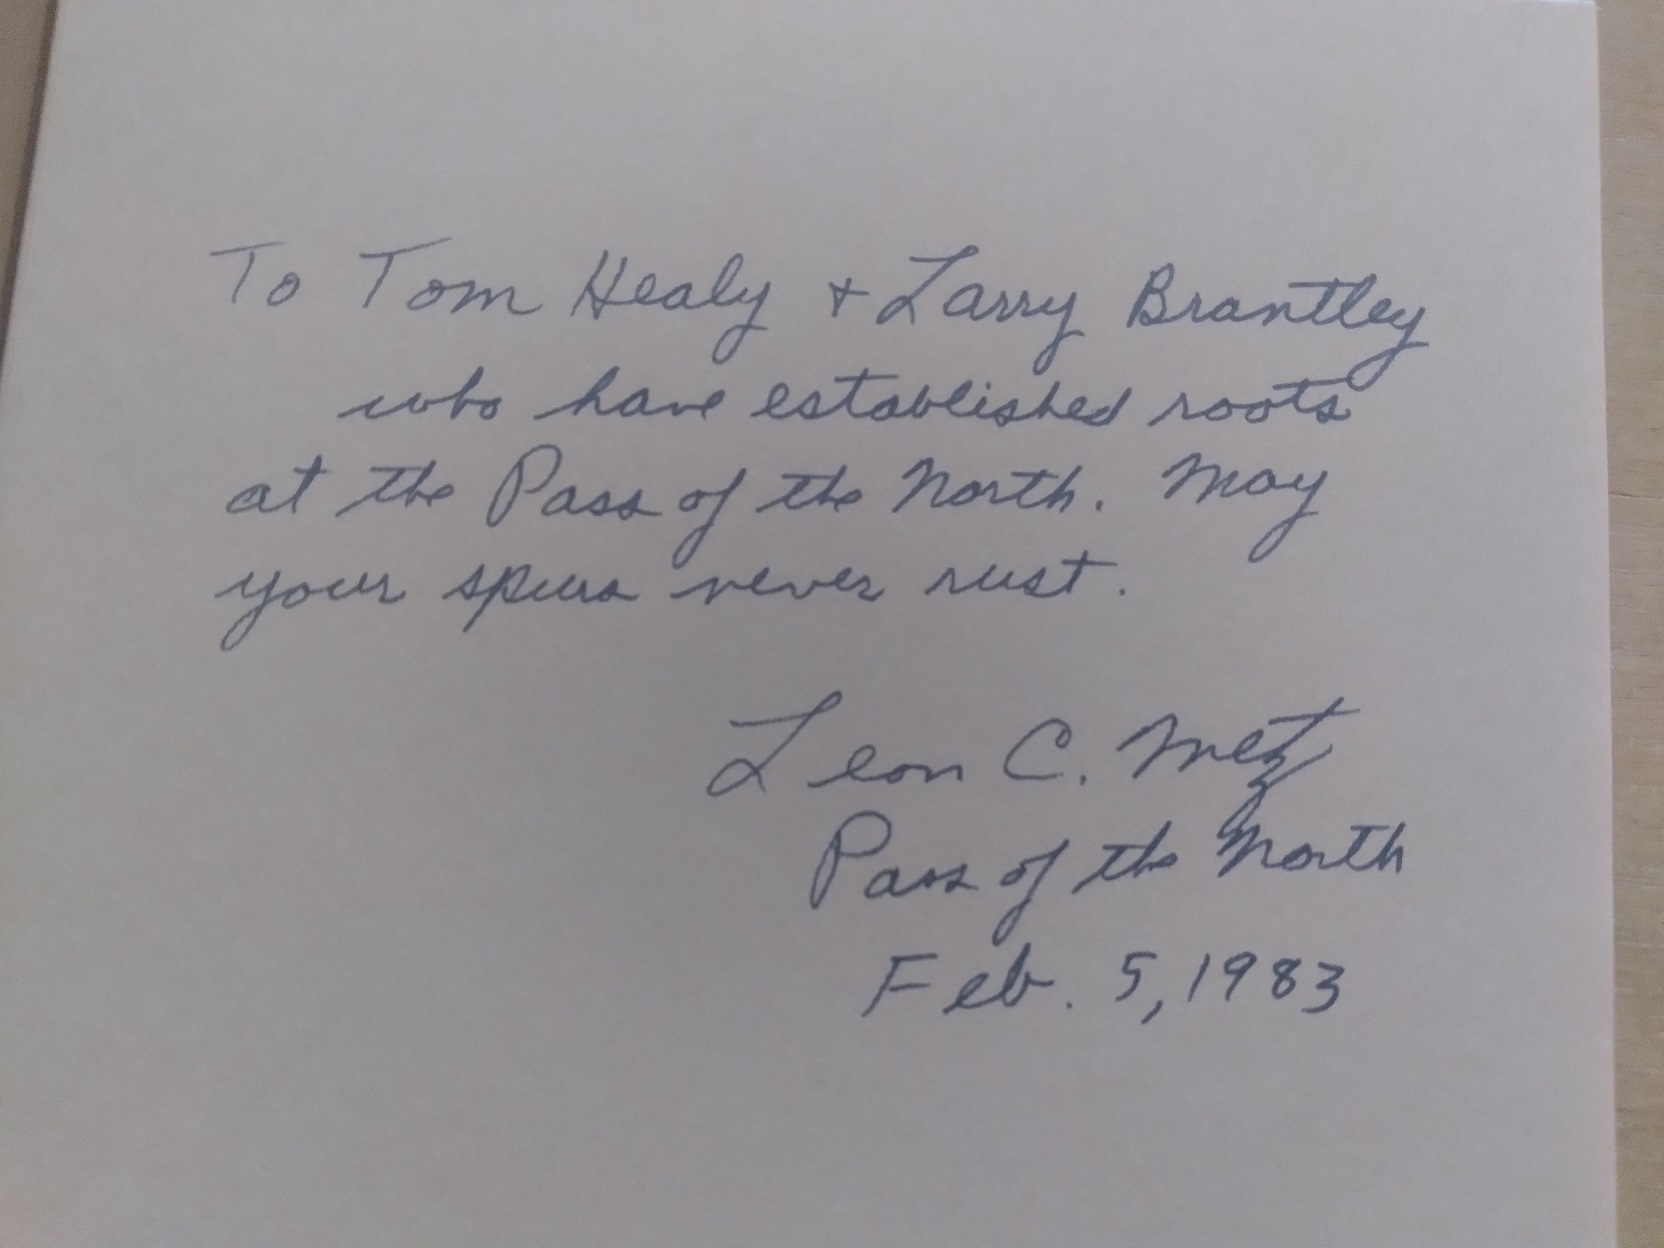 To Tom Healy + Larry Brantley
who have established roots
at the Pass of the North. May
your spurs never rust.
Leon C. Metz
Pass of the North
Feb. 5, 1983